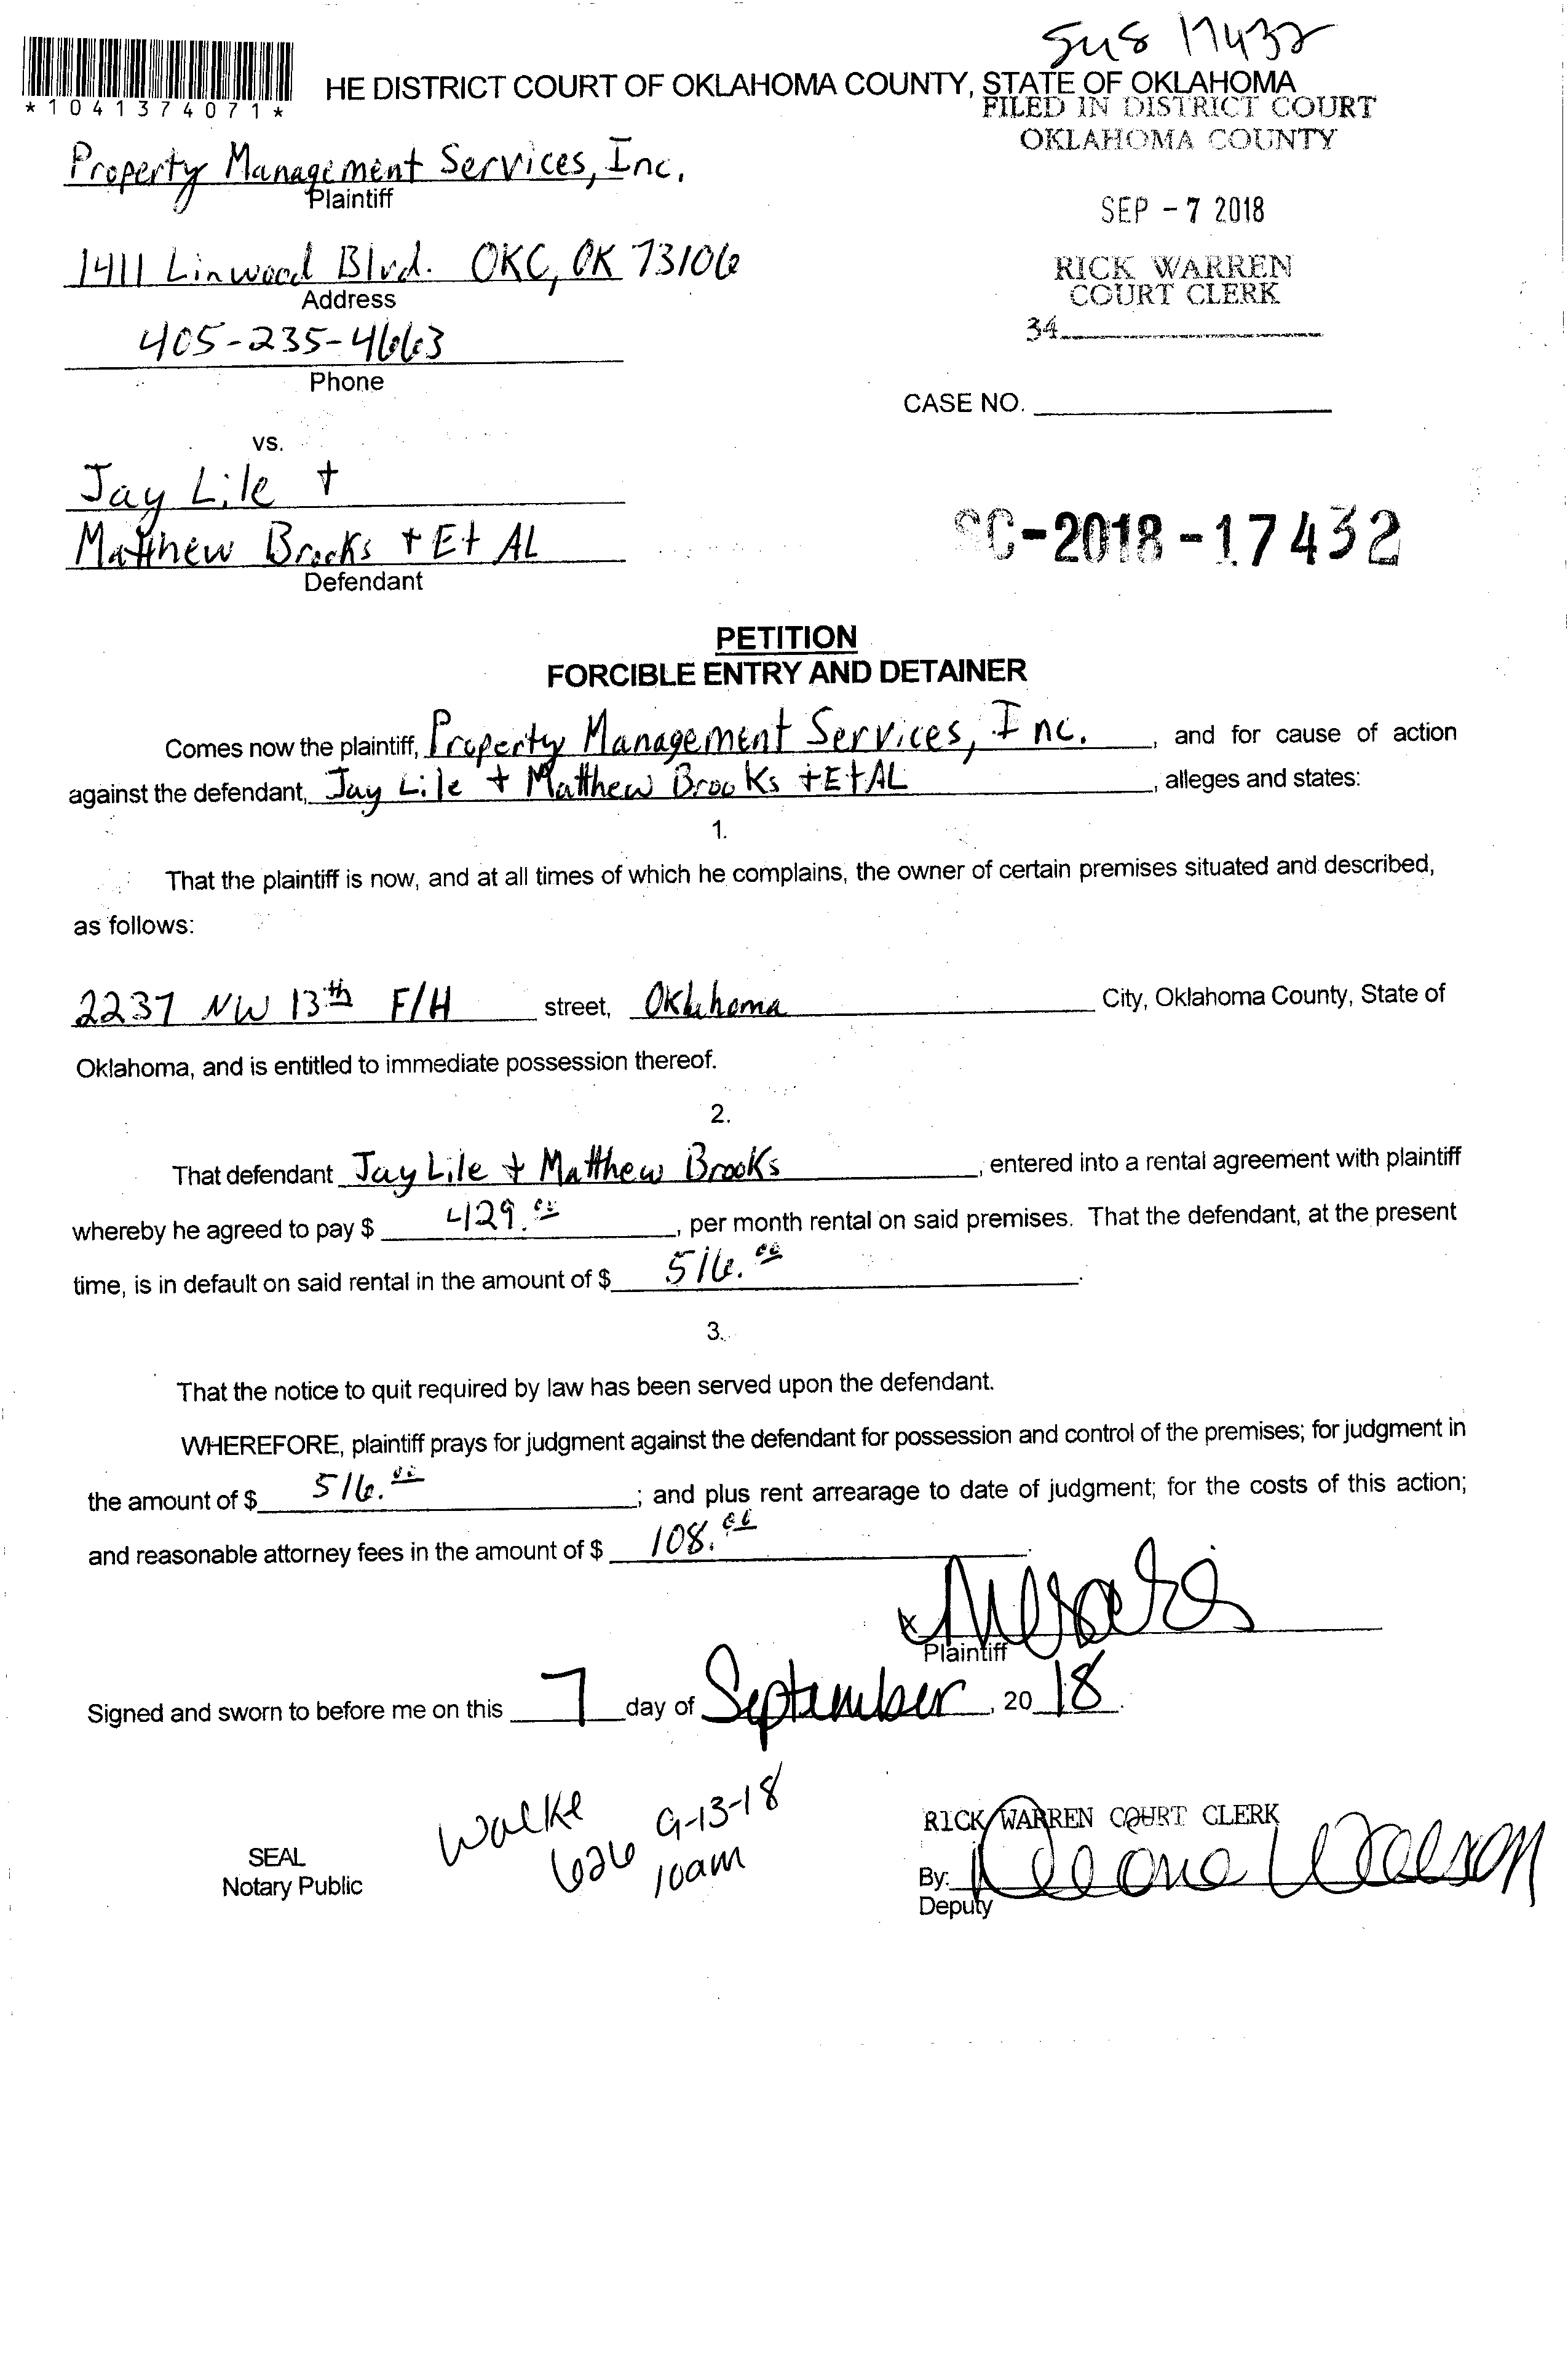 SUS 17432
*1041374071*
HE DISTRICT COURT OF OKLAHOMA COUNTY, STATE OF OKLAHOMA
FILED IN DISTRICT COURT
OKLAHOMA COUNTY
Property Management Services, Inc.
Plaintiff
SEP -7 2018
1411 Linwood Blvd. OKC, OK 73106
Address
RICK WARREN
COURT CLERK
405-235-4663
34
Phone
CASE NO.
vs.
Jay Lile +
Matthew Brooks + Et AL
Defendant
SC-2018-17432
PETITION
FORCIBLE ENTRY AND DETAINER
Comes now the plaintiff, Property Management Services, Inc., and for cause of action
against the defendant, Jay Lile + Matthew Brooks + Et AL, alleges and states:
1.
That the plaintiff is now, and at all times of which he complains, the owner of certain premises situated and described,
as follows:
2237 NW 13th F/H street, Oklahoma City, Oklahoma County, State of
Oklahoma, and is entitled to immediate possession thereof.
2.
That defendant Jay Lile + Matthew Brooks, entered into a rental agreement with plaintiff
whereby he agreed to pay $ 429.00, per month rental on said premises. That the defendant, at the present
time, is in default on said rental in the amount of $ 516.00.
3.
That the notice to quit required by law has been served upon the defendant.
WHEREFORE, plaintiff prays for judgment against the defendant for possession and control of the premises; for judgment in
the amount of $ 516.00; and plus rent arrearage to date of judgment; for the costs of this action;
and reasonable attorney fees in the amount of $ 108.00.
x
Plaintiff
Signed and sworn to before me on this 7 day of September, 2018.
Walke 9-13-18
626 10am
RICK WARREN COURT CLERK
SEAL
Notary Public
By:
Deputy